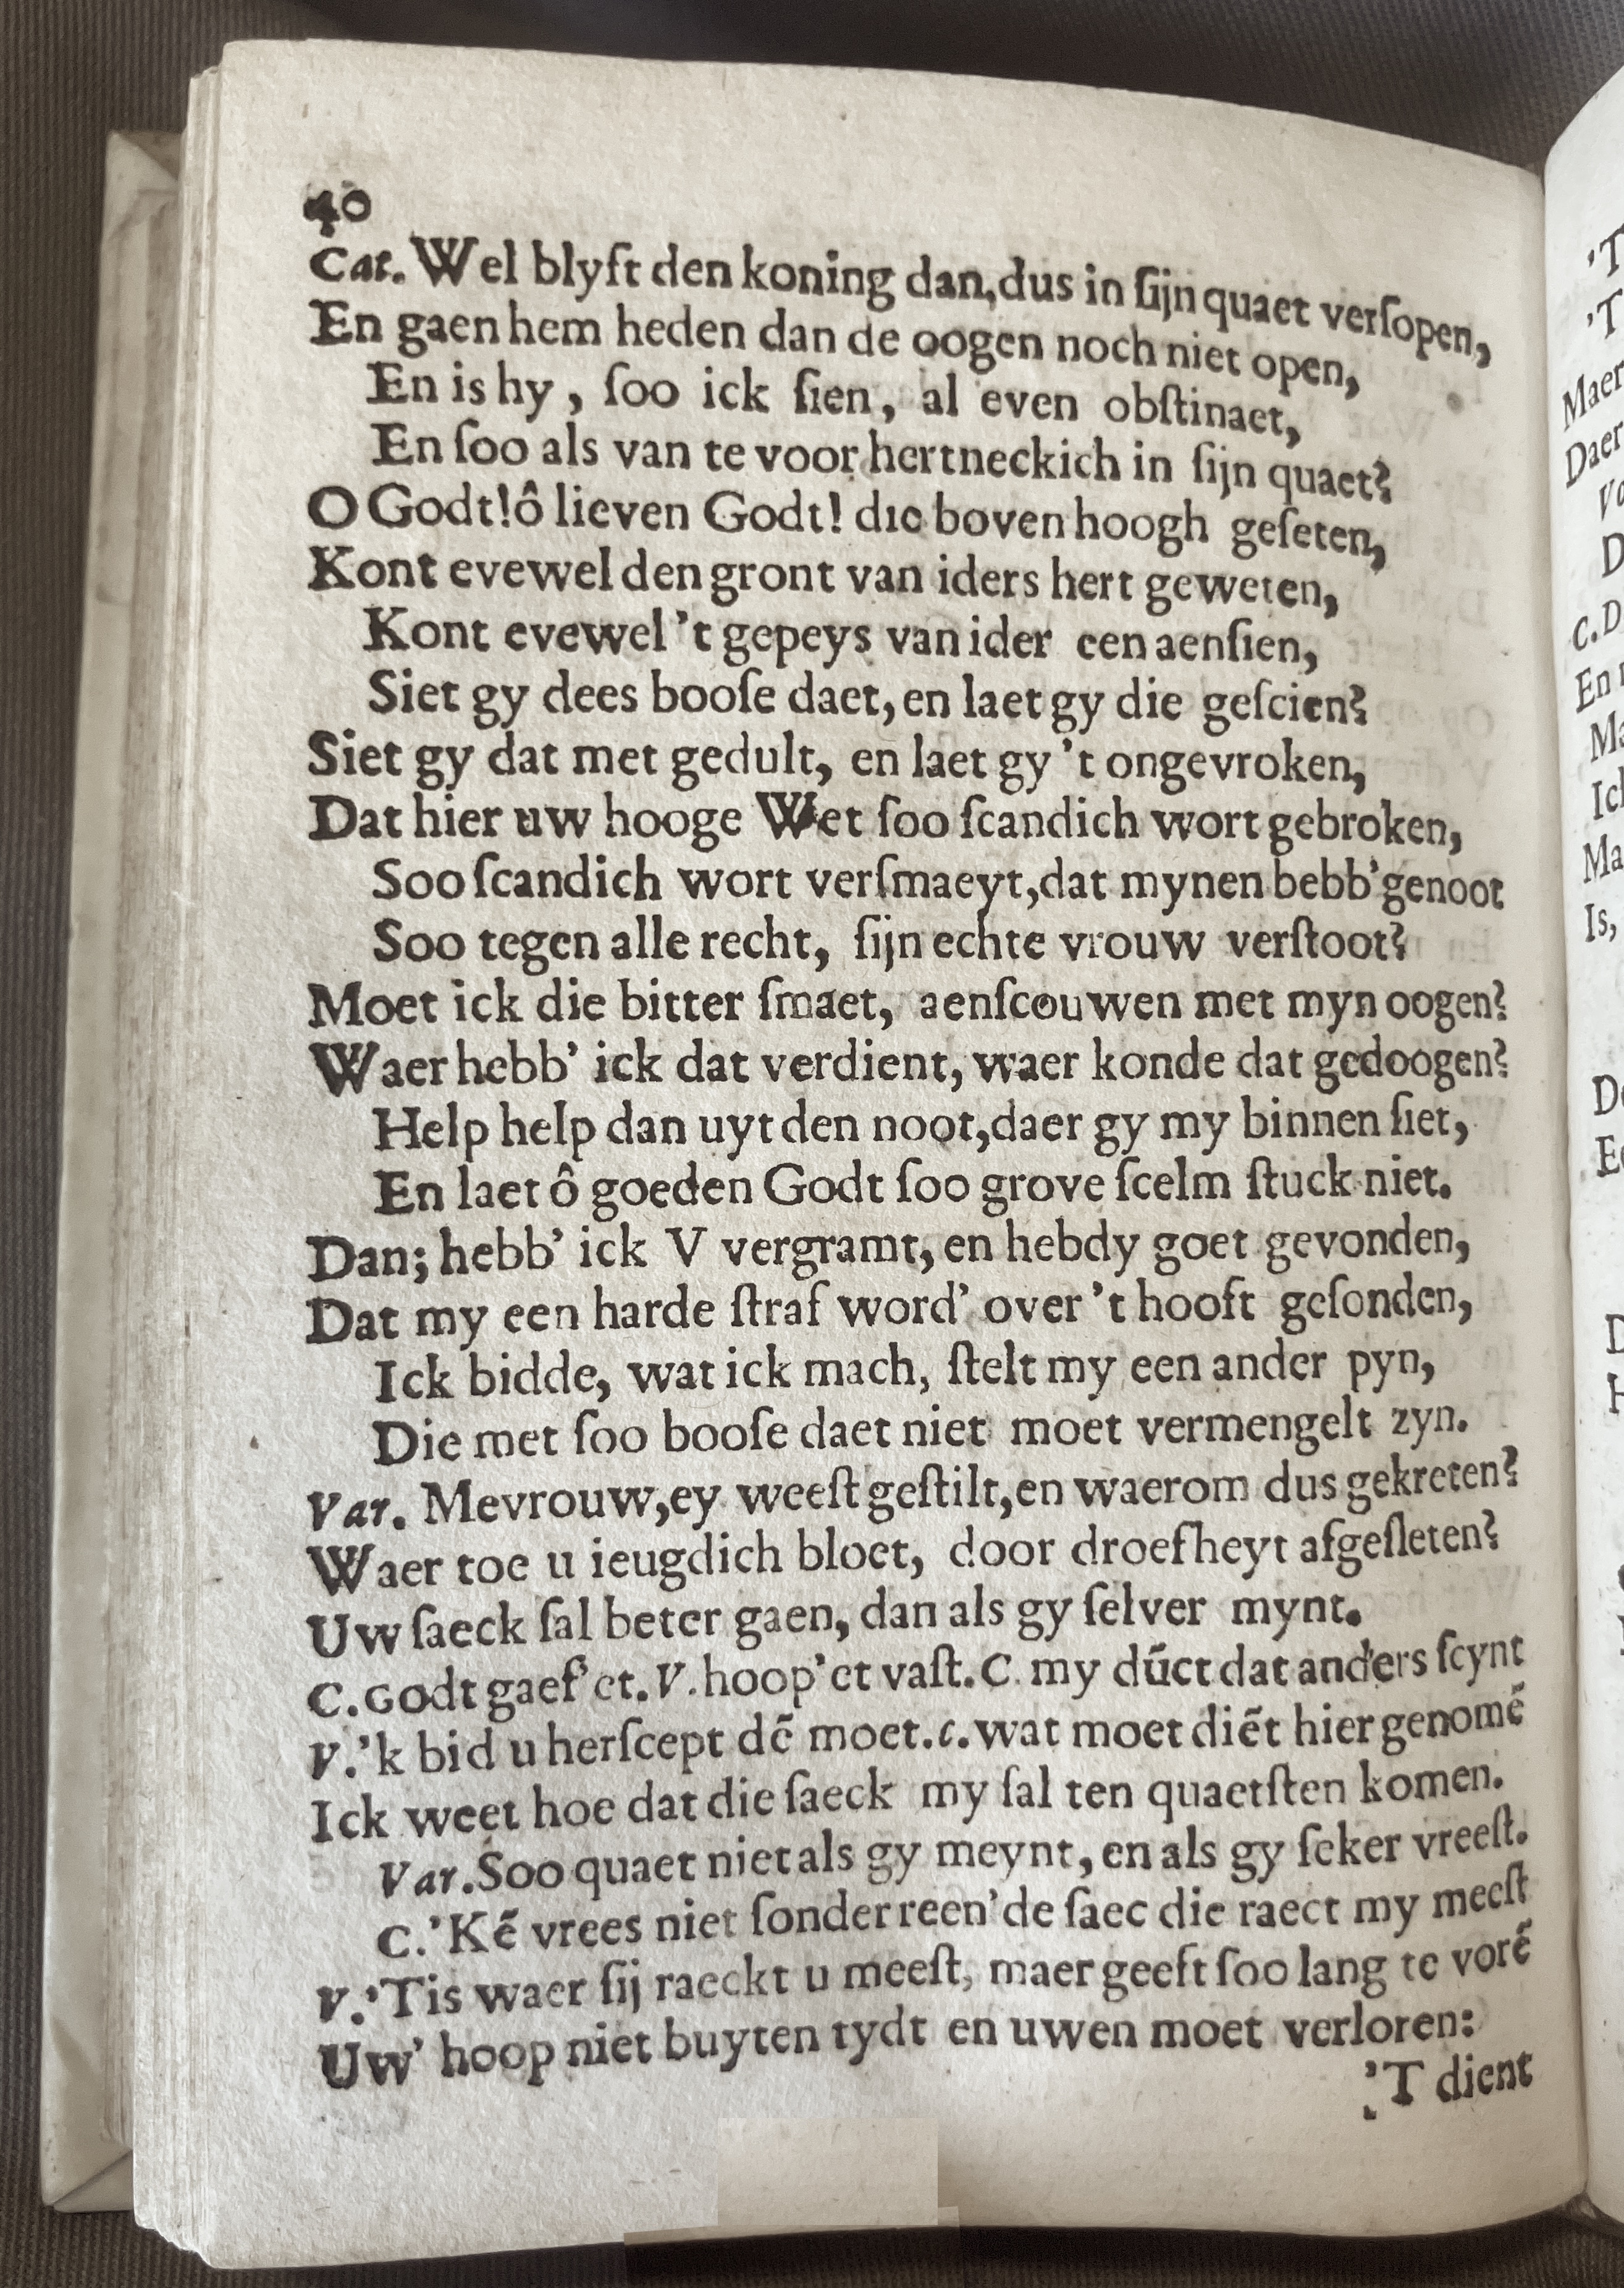 40
Cat. Wel blyft den koning dan, dus in ſijn quaet verſopen,
En gaen hem heden dan de oogen noch niet open,
En is hy, ſoo ick ſien, al even obſtinaet,
En ſoo als van te voor hertneckich in ſijn quaet?
O Godt! ô lieven Godt! die boven hoogh geſeten,
Kont evewel den gront van iders hert geweten,
Kont evewel 't gepeys van ider een aenſien,
Siet gy dees booſe daet, en laet gy die geſcien?
Siet gy dat met gedult, en laet gy 't ongevroken,
Dat hier uw hooge Wet ſoo ſcandich wort gebroken,
Soo ſcandich wort verſmaeyt, dat mynen bebb' genoot
Soo tegen alle recht, ſijn echte vrouw verſtoot?
Moet ick die bitter ſmaet, aenſcouwen met myn oogen?
Waer hebb' ick dat verdient, waer konde dat gedoogen?
Help help dan uyt den noot, daer gy my binnen ſiet,
En laet ô goeden Godt ſoo grove ſcelm ſtuck niet.
Dan; hebb' ick V vergramt, en hebdy goet gevonden,
Dat my een harde ſtraf word' over 't hooft geſonden,
Ick bidde, wat ick mach, ſtelt my een ander pyn,
Die met ſoo booſe daet niet moet vermengelt zyn.
Var. Mevrouw, ey weeſt geſtilt, en waerom dus gekreten?
Waer toe u ieugdich bloet, door droefheyt afgeſleten?
Uw ſaeck ſal beter gaen, dan als gy ſelver mynt.
C. Godt gaef' et. V. hoop' et vaſt. C. my dūct dat anders ſcynt
V. 'k bid u herſcept dē moet. C. wat moet diēt hier genomē
Ick weet hoe dat die ſaeck my ſal ten quaetſten komen.
Var. Soo quaet niet als gy meynt, en als gy ſeker vreeſt.
C. 'Kē vrees niet ſonder reen' de ſaec die raect my meeſt
V. 'Tis waer ſij raeckt u meeſt, maer geeft ſoo lang te vorē
Uw' hoop niet buyten tydt en uwen moet verloren:
'T dient